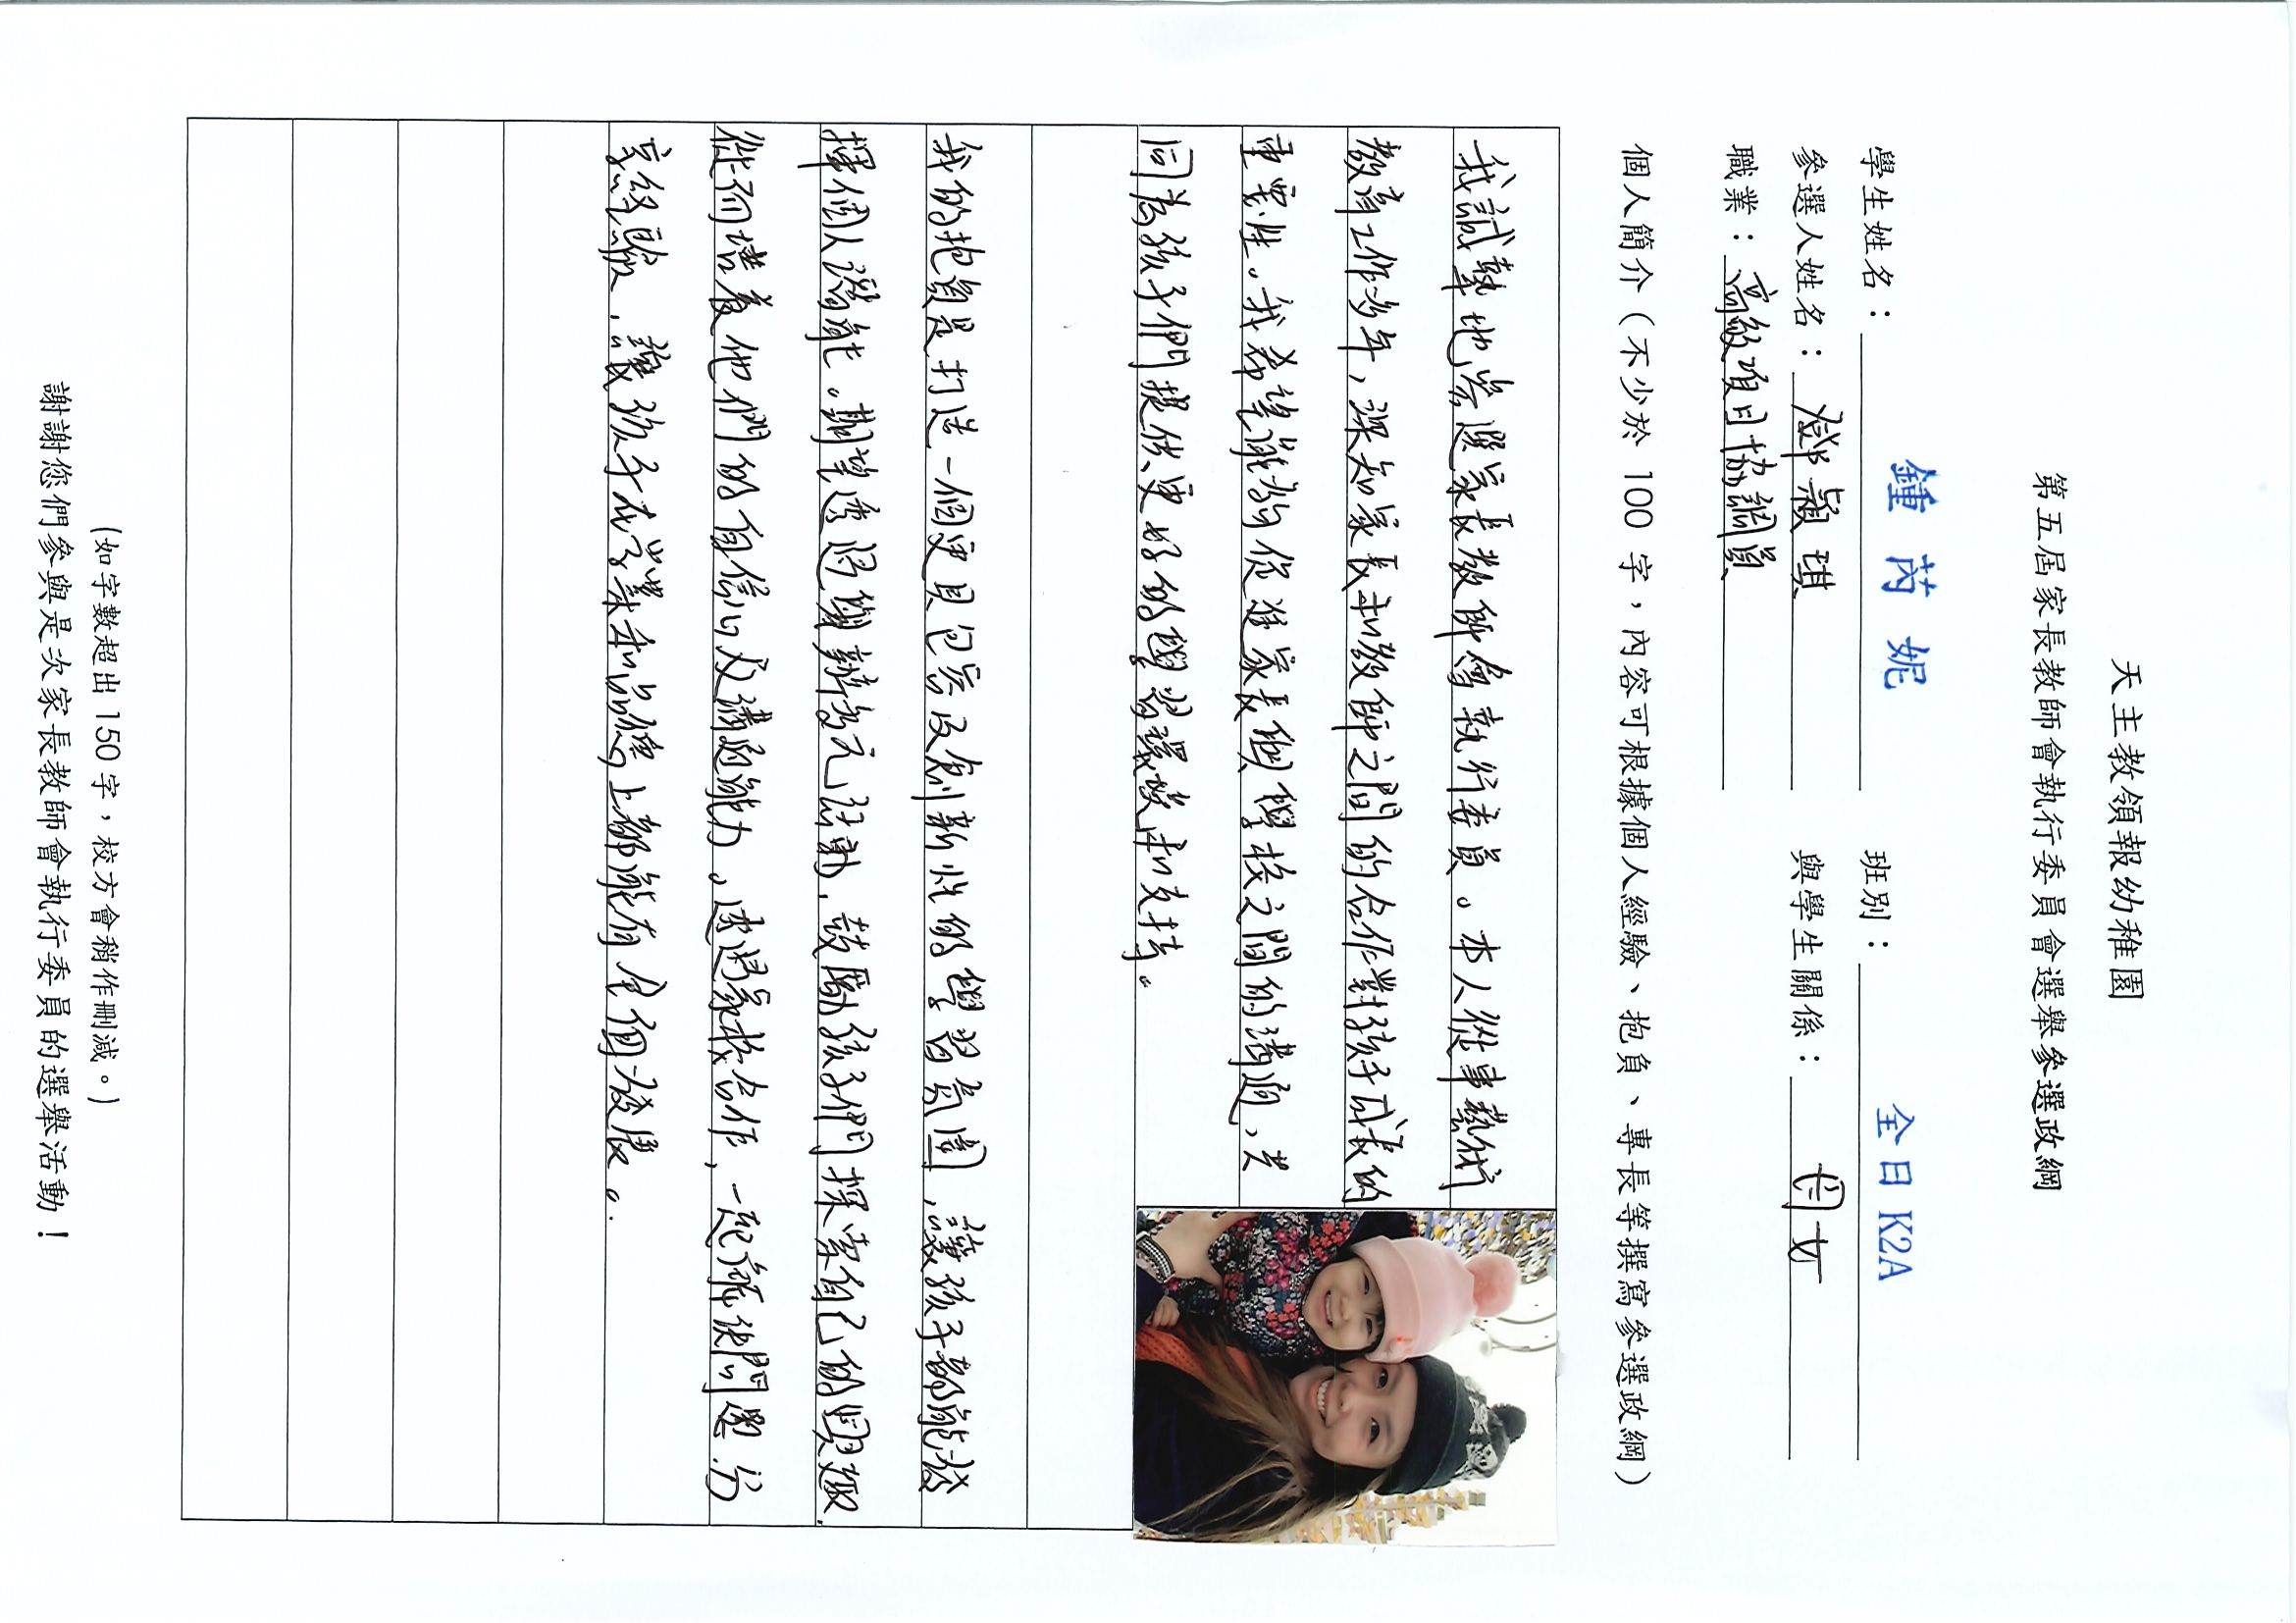 天主教領報幼稚園
第五屆家長教師會執行委員會選舉參選政綱
學生姓名：鍾芮妮 班別：全日K2A
參選人姓名：鄧淑琪 與學生關係：母女
職業：高級項目協調員
個人簡介（不少於 100 字，內容可根據個人經驗、抱負、專長等撰寫參選政綱）
我誠摯地參選家長教師會執行委員。本人從事藝術
教育工作多年，深知家長和教師之間的合作對孩子成長的
重要性。我希望能夠促進家長與學校之間的溝通，共
同為孩子們提供更好的學習環境和支持。
我的抱負是打造一個更具包容及創新性的學習氛圍，讓孩子都能發
揮個人潛能。期望透過舉辦多元活動，鼓勵孩子們探索自己的興趣，
從而培養他們的自信心及溝通能力。透過家校合作，一起
，讓孩子在學業和品德上都能有全面發展。
(如字數超出 150 字，校方會稍作刪減。)
謝謝您們參與是次家長教師會執行委員的選舉活動！